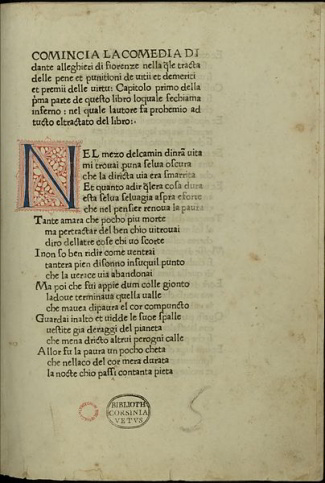 COMINCIA LACOMEDIA DI
dante alleghieri di fiorenze nella q̄le tracta
delle pene et punitioni de uitii et demeriti
et premii delle uirtu: Capitolo primo della
p̄ma parte de questo libro loquale sechiama
inferno: nel quale lautore fa prohemio ad
tucto eltractato del libro:.
NEL mezo delcamin dinr̄a uita
mi trouai puna selua oscura
che la diricta uia era smarrita
Et quanto adir q̄lera cosa dura
esta selua seluagia aspra eforte
che nel pensier renoua la paura
Tante amara che pocho piu morte
ma pertractar del ben chio uitrouai
diro dellatre cose chi uo scorte
I non so ben ridir come uentrai
tantera pien disonno insuquil punto
che la uerace uia abandonai
Ma poi che fui appie dum colle gionto
ladoue terminaua quella ualle
che mauea dipaura el cor compuncto
Guardai inalto et uidde le sue spalle
uestite gia deraggi del pianeta
che mena dricto altrui perogni calle
Allor fu la paura un pocho cheta
che nellaco del cor mera durata
la nocte chio passi contanta pieta
BIBLIOTH
CORSINIA
VETVS